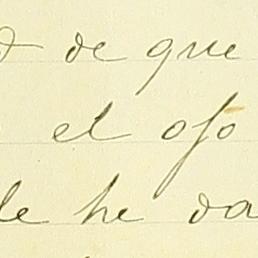 de que
el oso
le he da